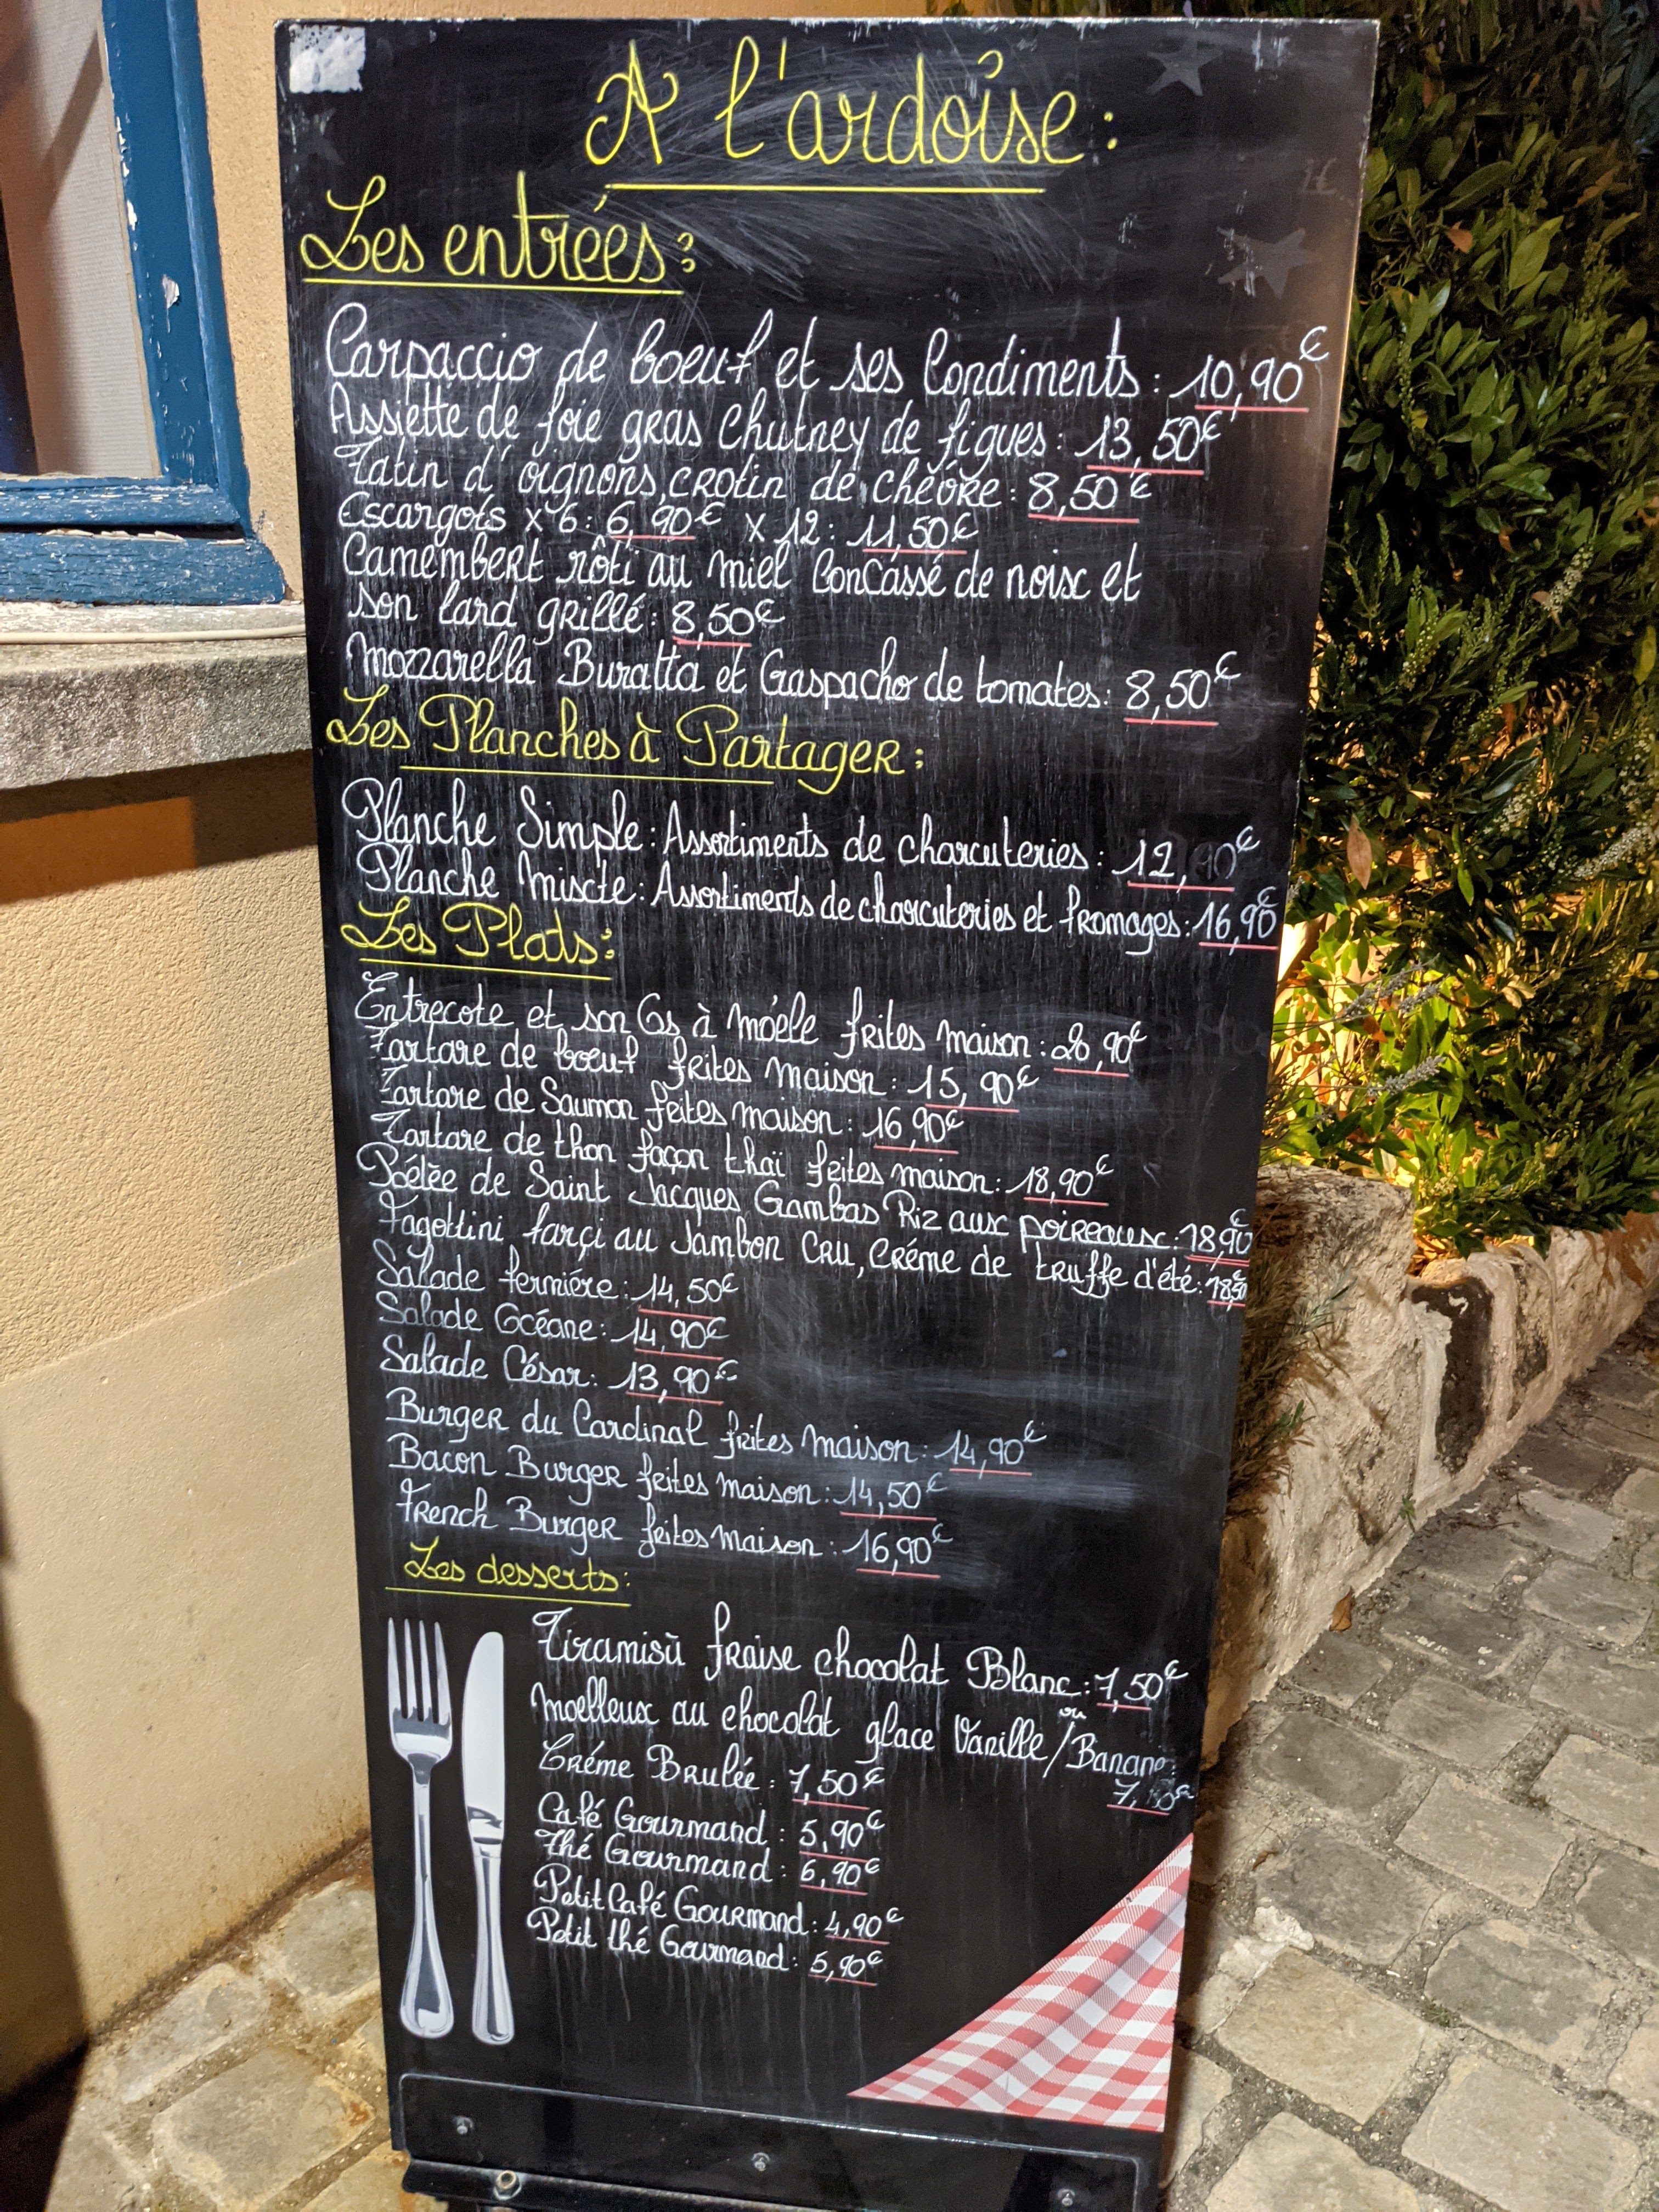 A l'ardoise :
Les entrées :
Carpaccio de boeuf et ses Condiments : 10,90€
Assiette de foie gras Chutney de figues : 13,50€
Tatin d'oignons, crotin de chèvre : 8,50€
Escargots x 6 : 6,90€ x 12 : 11,50€
Camembert rôti au miel Concassé de noix et
son lard grillé : 8,50€
Mozzarella Buratta et Gaspacho de tomates : 8,50€
Les Planches à Partager :
Planche Simple : Assortiments de charcuteries : 12,90€
Planche Mixte : Assortiments de charcuteries et fromages : 16,90€
Les Plats :
Entrecote et son Os à móele frites maison : 20,90€
Tartare de boeuf frites maison : 15,90€
Tartare de Saumon frites maison : 16,90€
Tartare de thon façon thaï frites maison : 18,90€
Poêlée de Saint Jacques Gambas Riz aux poireaux : 18,90€
Fagottini farçi au Jambon cru, créme de truffe d'été : 18,50€
Salade fermiére : 14,50€
Salade Océane : 14,90€
Salade César : 13,90€
Burger du Cardinal frites maison : 14,90€
Bacon Burger frites maison : 14,50€
French Burger frites maison : 16,90€
Les desserts :
Tiramisù fraise chocolat Blanc : 7,50€
Moelleux au chocolat glace Vanille / ou Banane :
Créme Brulée : 7,50€
Café Gourmand : 5,90€
Thé Gourmand : 6,90€
Petit Café Gourmand : 4,90€
Petit thé Gourmand : 5,90€